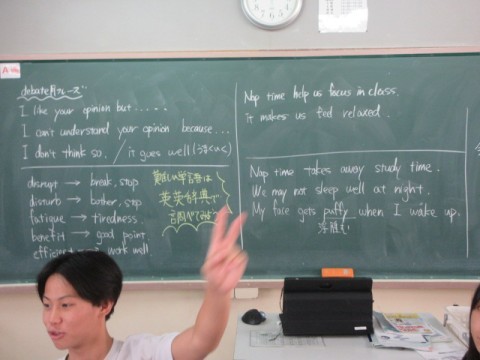 A
debate用フレーズ
I like your opinion but.....
I can't understand your opinion because...
I don't think so. / it goes well (うまくいく)
disrupt → break, stop
disturb → bother, stop
fatigue → tiredness.
benefit → good point.
work well.
難しい単語は
英英辞典で
調べてみよう
Nap time help us focus in class.
it makes us feel relaxed.
Nap time takes away study time.
We may not sleep well at night.
My face gets puffy when I wake up.